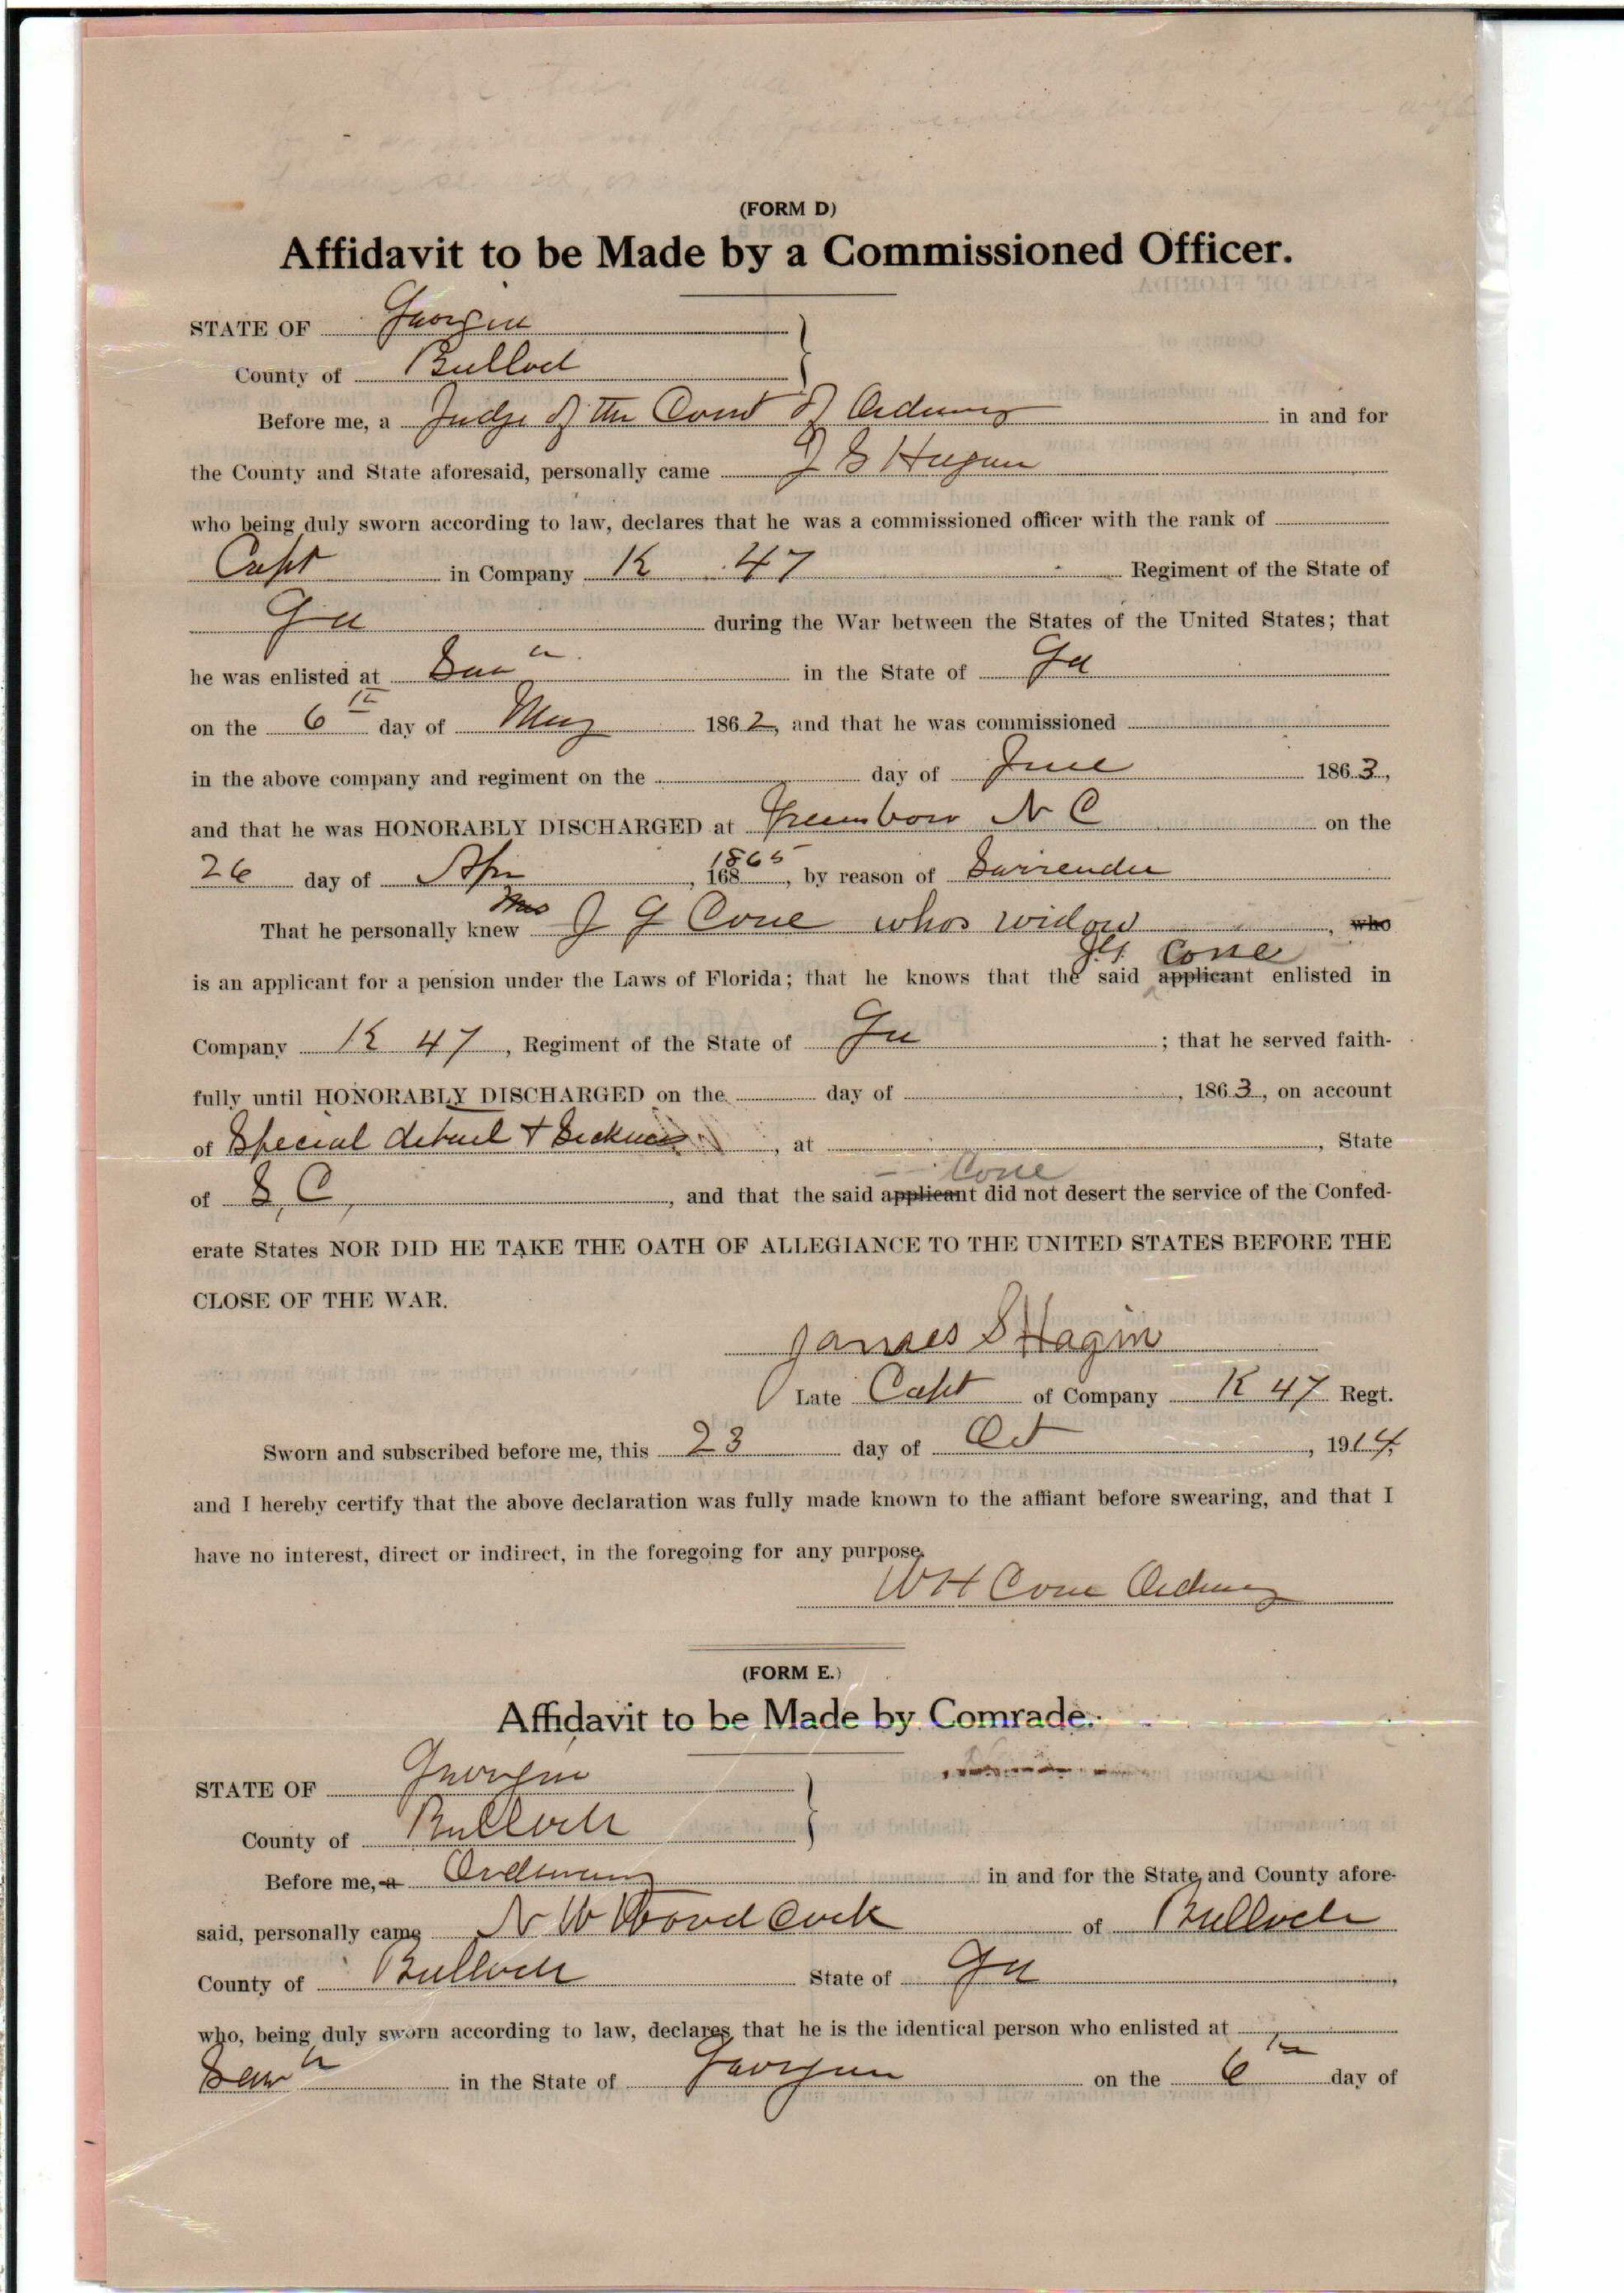 (FORM D)
Affidavit to be Made by a Commissioned Officer.
STATE OF Georgia
County of Bulloch
Before me, a Judge of the Court of Ordinary in and for
the County and State aforesaid, personally came J S Hagin
who being duly sworn according to law, declares that he was a commissioned officer with the rank of
Capt in Company K 47 Regiment of the State of
Ga during the War between the States of the United States; that
he was enlisted at Savh in the State of Ga
on the 6th day of May 1862, and that he was commissioned
in the above company and regiment on the day of June 1863,
and that he was HONORABLY DISCHARGED at Greensboro N C on the
26 day of Apr, 168 1865, by reason of Surrender
That he personally knew Mrs J G Cone whos widow, who
is an applicant for a pension under the Laws of Florida; that he knows that the said applicant J.G. Cone enlisted in
Company K 47, Regiment of the State of Ga; that he served faith-
fully until HONORABLY DISCHARGED on the day of , 1863, on account
of Special detail + Sickness, at , State
of S, C, and that the said applicant Cone did not desert the service of the Confed-
erate States NOR DID HE TAKE THE OATH OF ALLEGIANCE TO THE UNITED STATES BEFORE THE
CLOSE OF THE WAR.
James S Hagin
Late Capt of Company K 47 Regt.
Sworn and subscribed before me, this 23 day of Oct, 1914,
and I hereby certify that the above declaration was fully made known to the affiant before swearing, and that I
have no interest, direct or indirect, in the foregoing for any purpose.
W H Cone Ordinary
(FORM E.)
Affidavit to be Made by Comrade.
STATE OF Georgia
County of Bulloch
Before me, a Ordinary in and for the State and County afore-
said, personally came N W Woodcock of Bulloch
County of Bulloch State of Ga,
who, being duly sworn according to law, declares that he is the identical person who enlisted at
Savh in the State of Georgia on the 6th day of